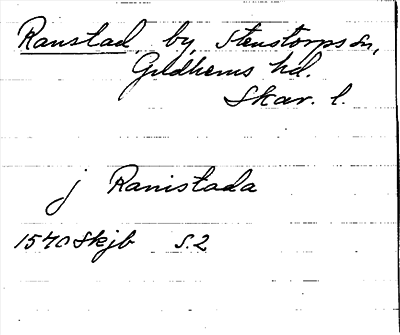 Ranstad, by, Stenstorps sn,
Gudhems hd.
Skar. l.
j Ranistada
1540 Skjb S. 2